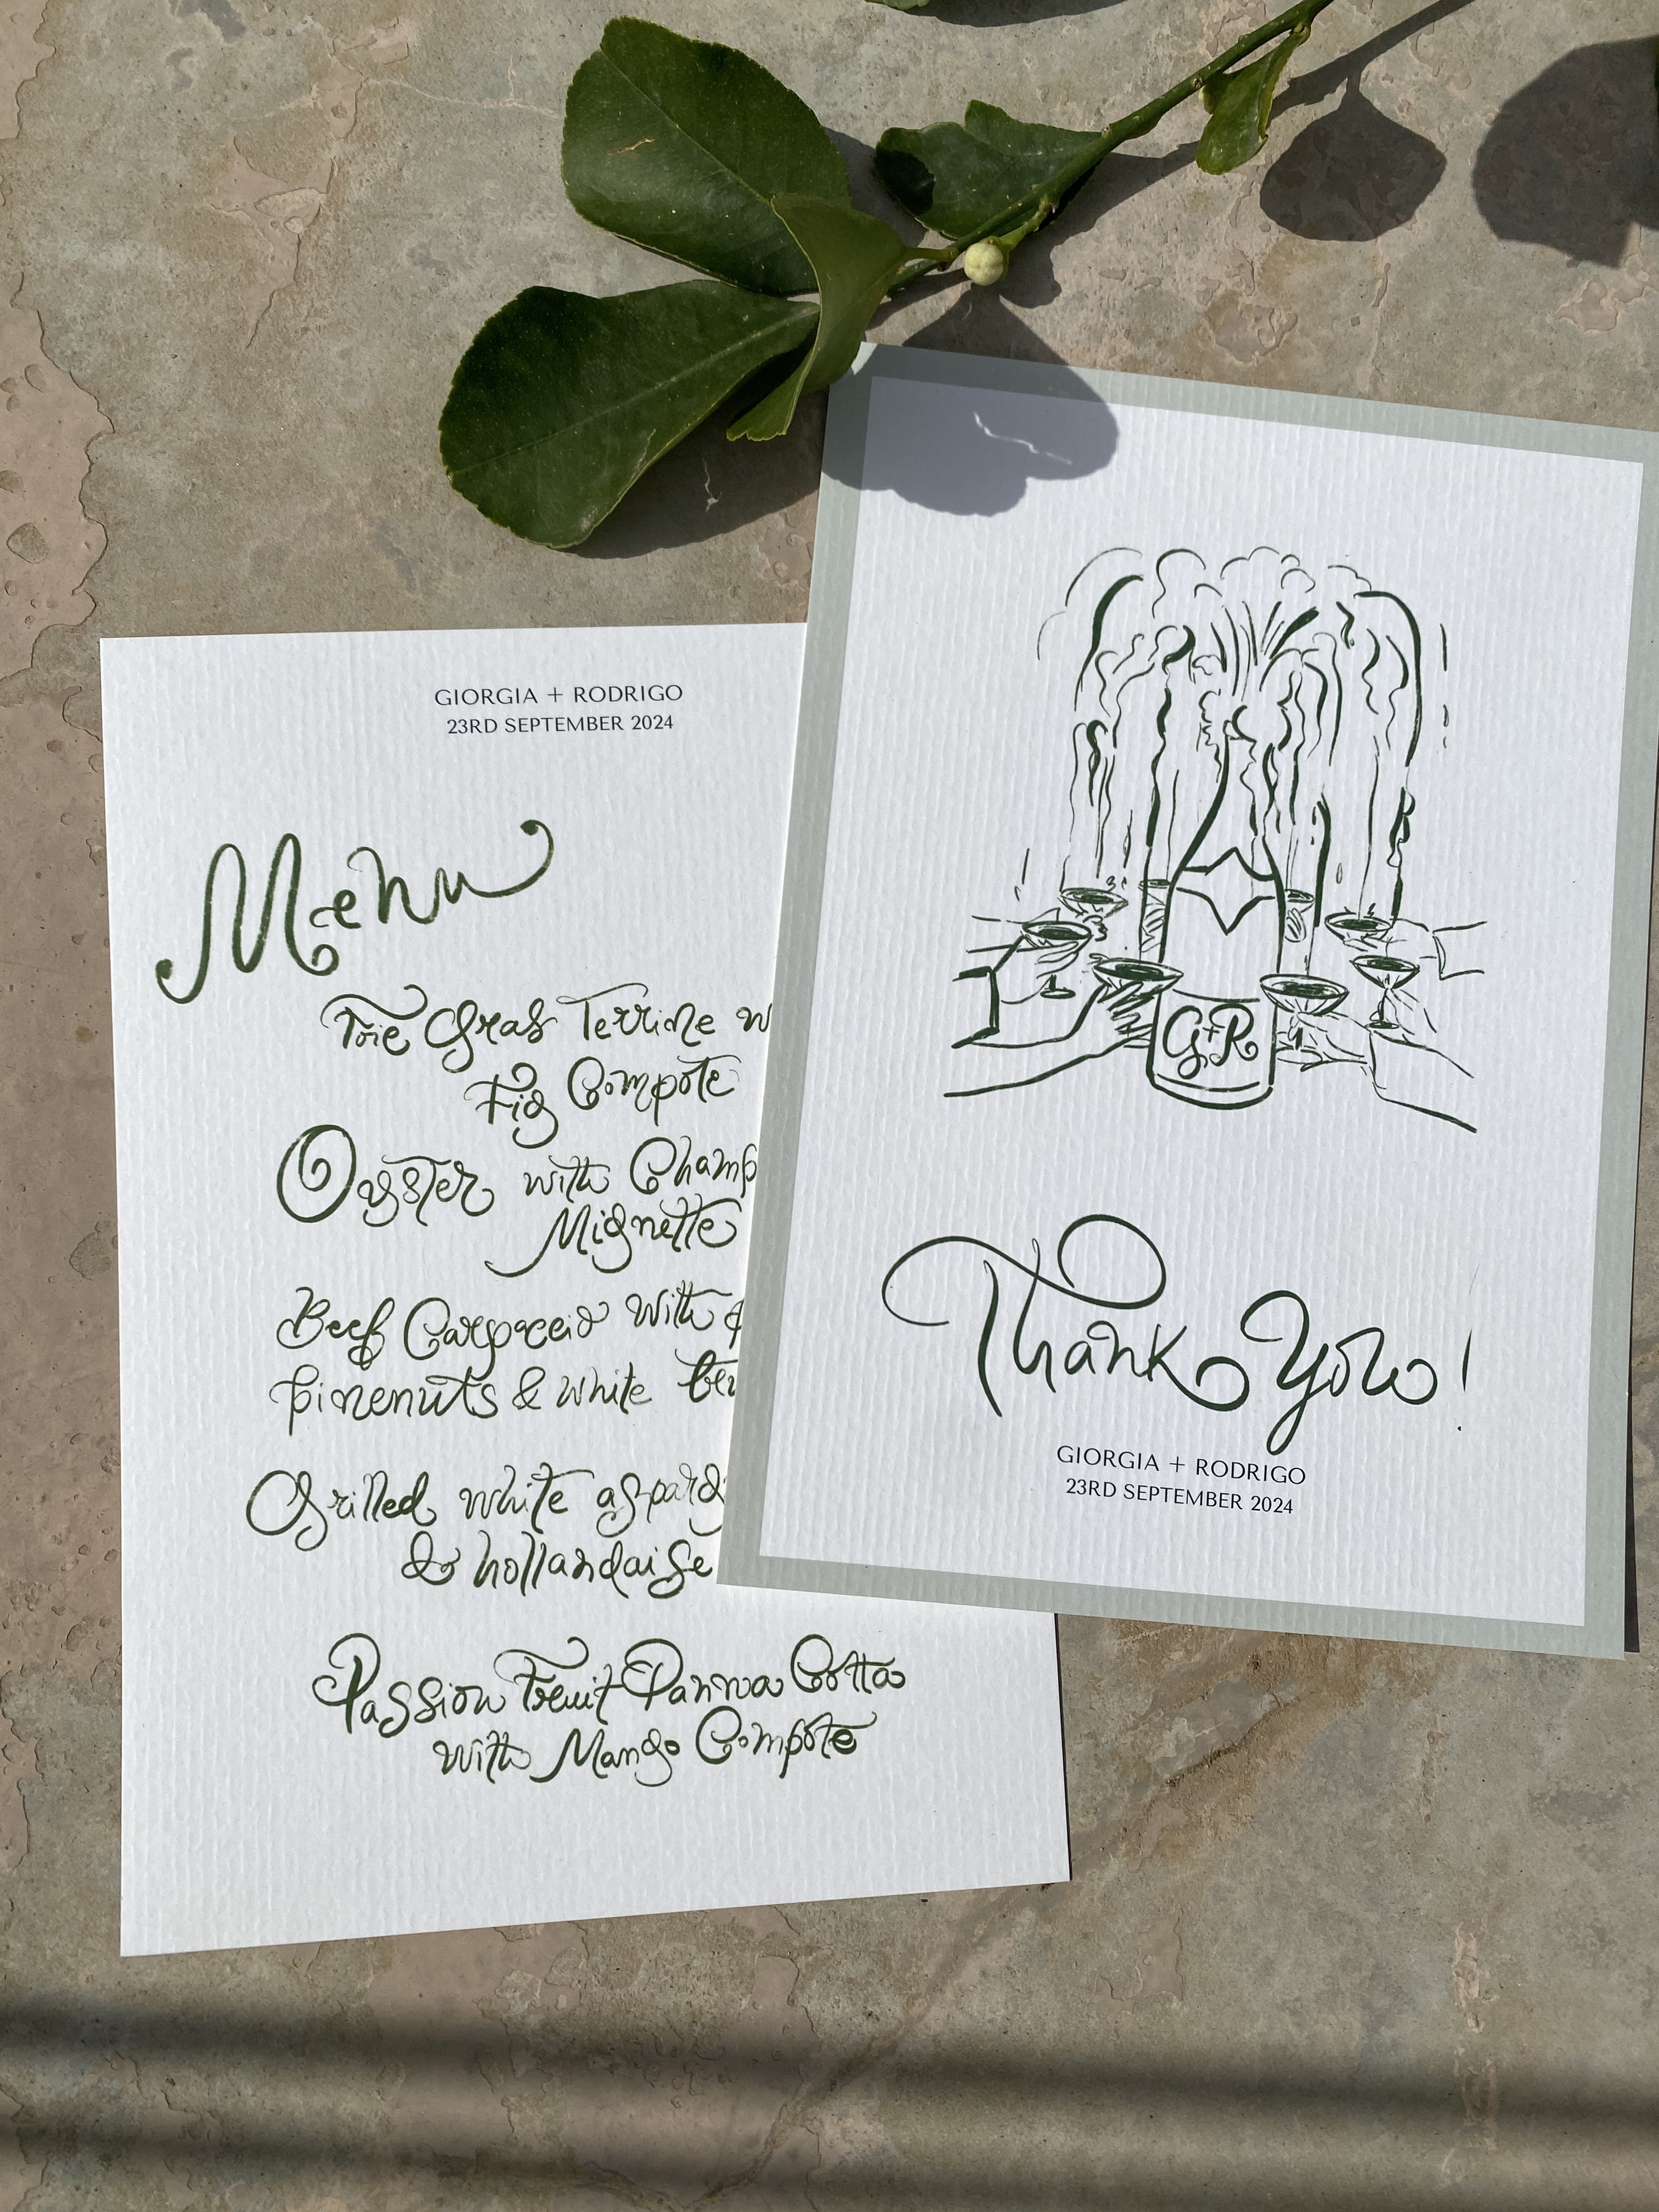 GIORGIA + RODRIGO
23RD SEPTEMBER 2024
Menu
Foie Gras Terrine w
Fig Compote
Oyster with Champ
Mignette
Beef Carpaccio with
pinenuts & white
Grilled white asparag
& hollandaise
Passion Fruit Panna Cotta
with Mango Compote
G+R
Thank You!
GIORGIA + RODRIGO
23RD SEPTEMBER 2024